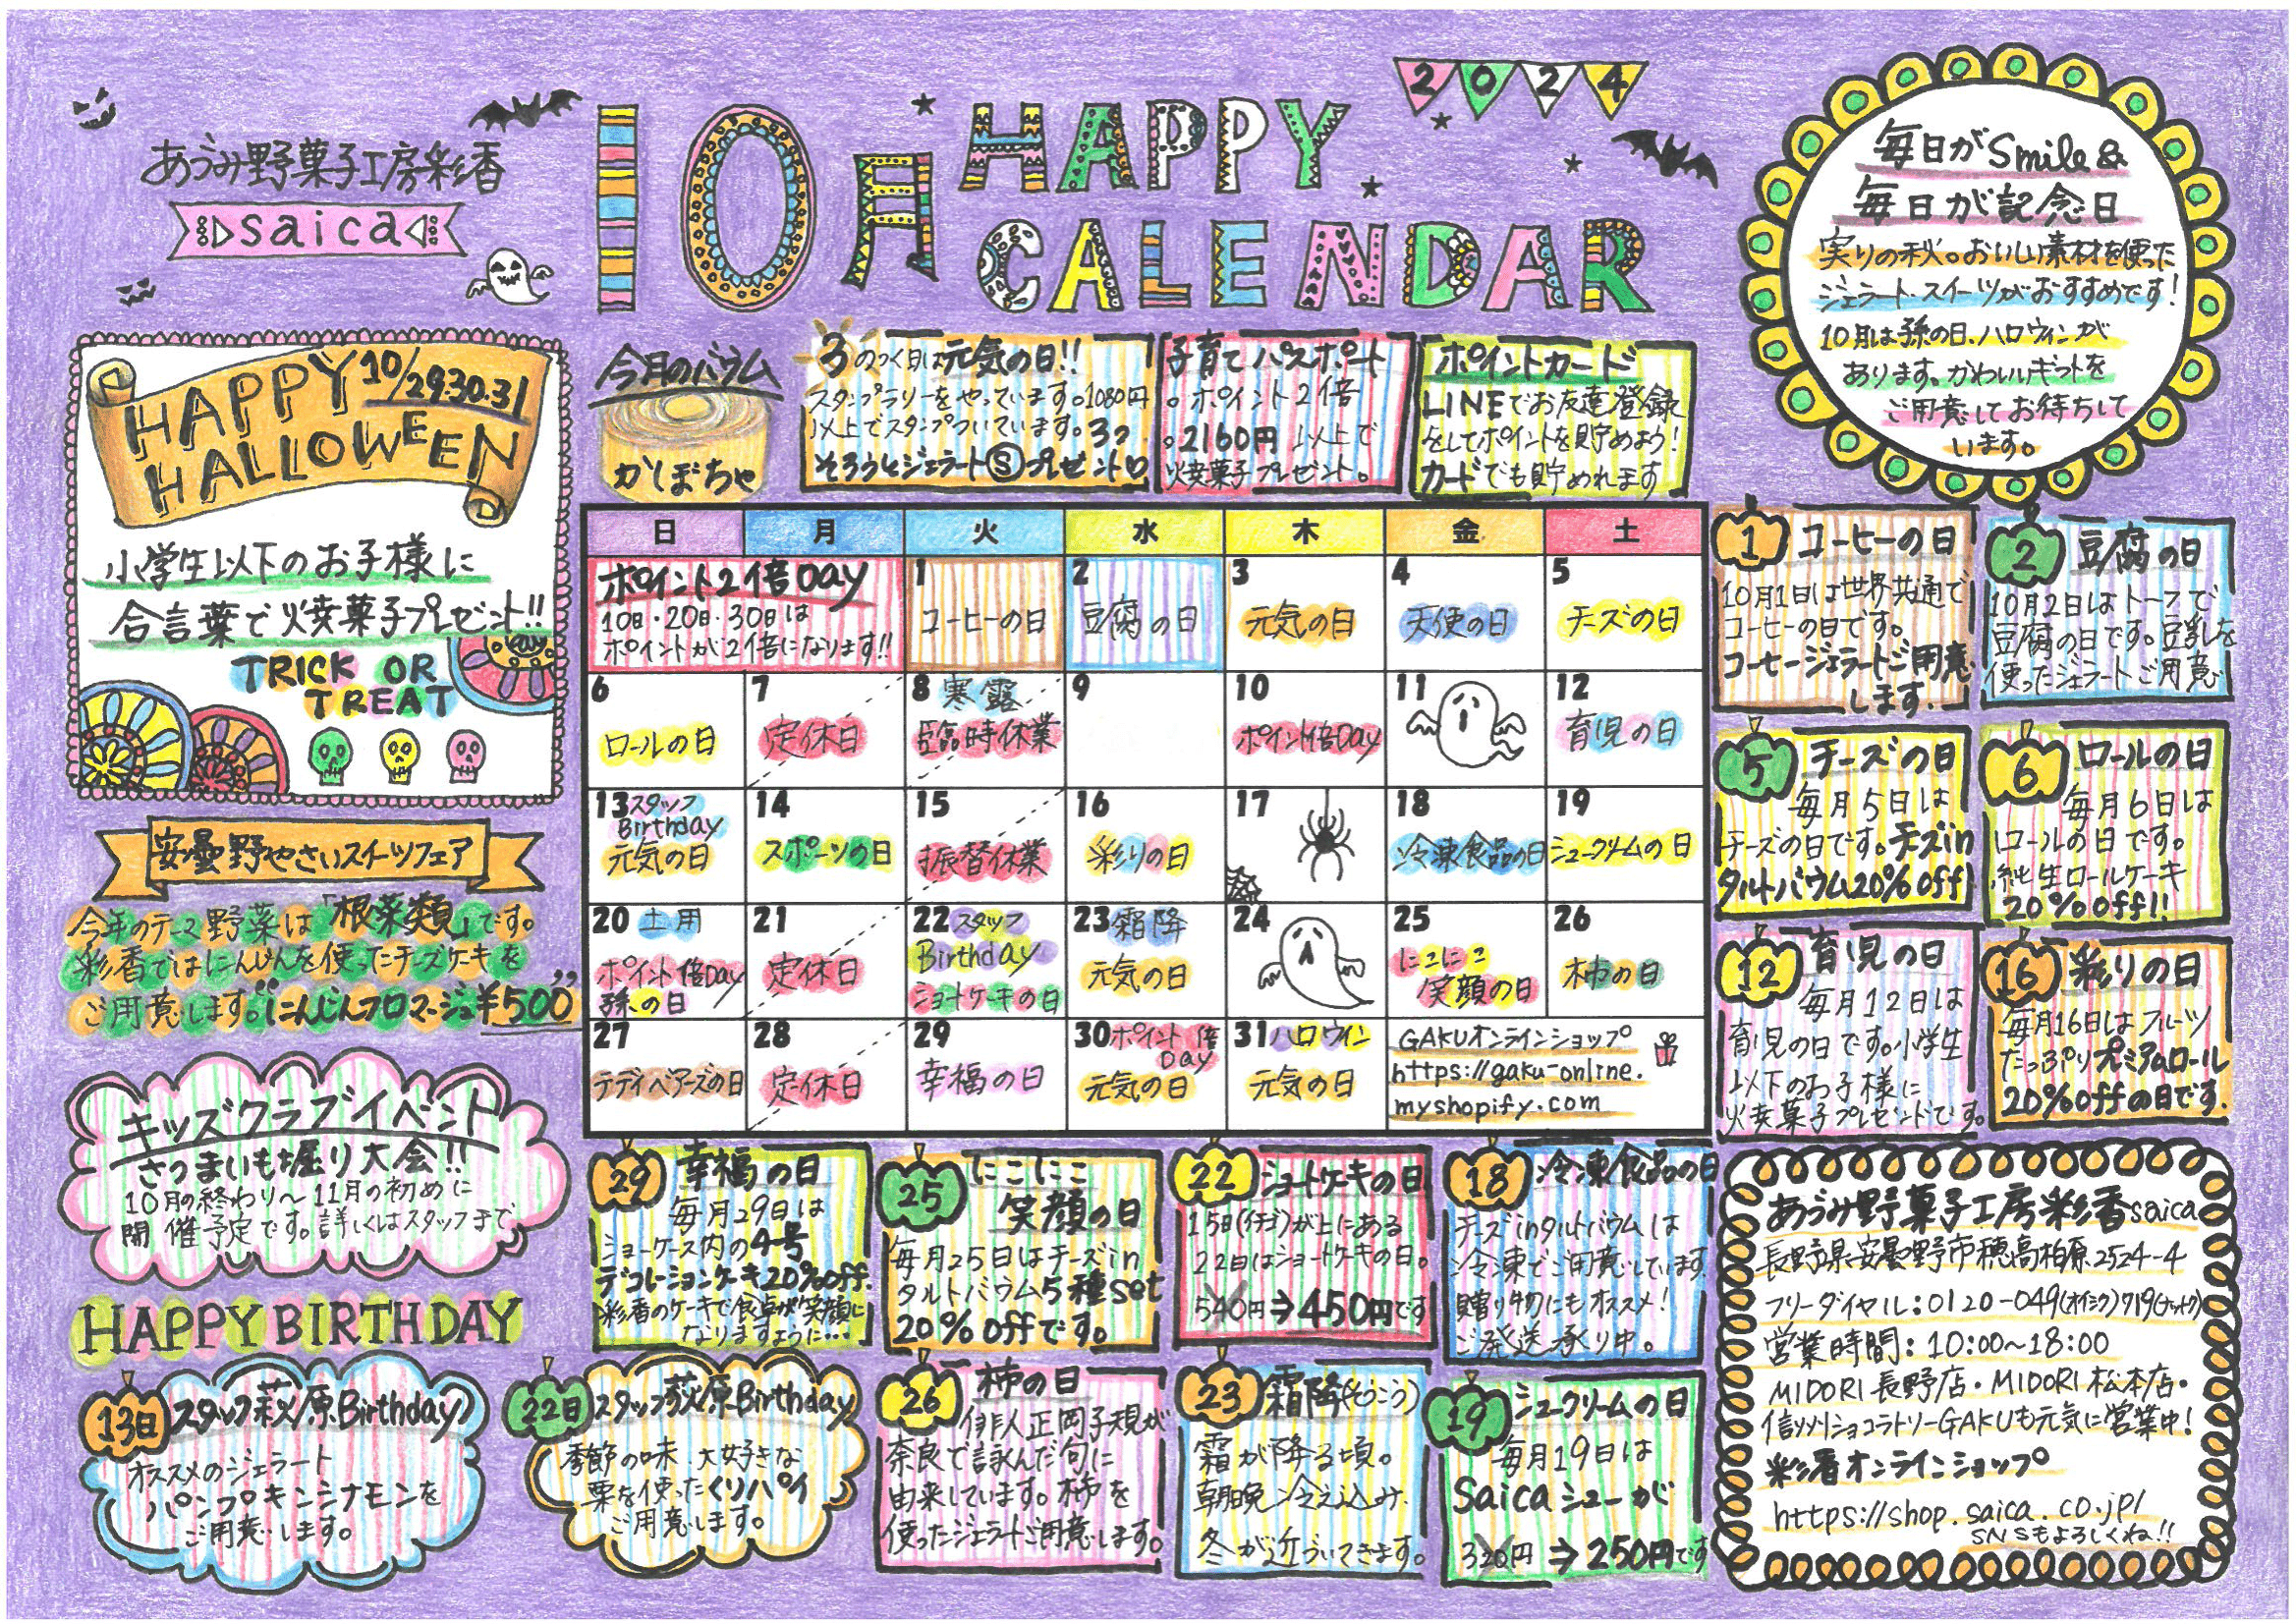 あづみ野菓子工房彩香
saica
10月 HAPPY
CALENDAR
2024
毎日がSmile&
毎日が記念日
実りの秋。おいしい素材を使った
ジェラート・スイーツがおすすめです!
10月は孫の日、ハロウィンが
あります。かわいいギフトを
ご用意してお待ちして
います。
HAPPY 10/29.30.31
HALLOWEEN
小学生以下のお子様に
合言葉で焼菓子プレゼント!!
TRICK OR
TREAT
今月のバウム
かぼちゃ
3のつく日は元気の日!!
スタンプラリーをやっています。1080円
以上でスタンプついています。3つ
そろうとジェラートⓈプレゼント♡
子育てパスポート
。ポイント2倍
。2160円以上で
焼菓子プレゼント。
ポイントカード
LINEでお友達登録
をしてポイントを貯めよう!
カードでも貯めれます
日 月 火 水 木 金 土
ポイント2倍Day
10日・20日・30日は
ポイントが2倍になります!!
1 コーヒーの日
2 豆腐の日
3 元気の日
4 天使の日
5 チーズの日
6 ロールの日
7 定休日
8 寒露
臨時休業
9
10 ポイント倍Day
11
12 育児の日
13 スタッフ
Birthday
元気の日
14 スポーツの日
15 振替休業
16 彩りの日
17
18 冷凍食品の日
19 シュークリームの日
20 土用
ポイント倍Day
孫の日
21 定休日
22 スタッフ
Birthday
ショートケーキの日
23 霜降
元気の日
24
25 にこにこ
笑顔の日
26 柿の日
27 テディベアーズの日
28 定休日
29 幸福の日
30 ポイント倍
Day
元気の日
31 ハロウィン
元気の日
GAKUオンラインショップ
https://gaku-online.
myshopify.com
1 コーヒーの日
10月1日は世界共通で
コーヒーの日です。
コーヒージェラートご用意
します.
2 豆腐の日
10月2日はトーフで
豆腐の日です。豆乳を
使ったジェラートご用意
5 チーズの日
毎月5日は
チーズの日です。チーズin
タルトバウム20%off
6 ロールの日
毎月6日は
ロールの日です。
純生ロールケーキ
20%off!!
12 育児の日
毎月12日は
育児の日です。小学生
以下のお子様に
焼菓子プレゼントです。
16 彩りの日
毎月16日はフルーツ
たっぷりプレミアムロール
20%offの日です.
安曇野やさいスイーツフェア
今年のテーマ野菜は「根菜類」です。
彩香ではにんじんを使ったチーズケーキを
ご用意します。“にんじんフロマージュ¥500”
キッズクラブイベント
さつまいも堀り大会!!
10月の終わり〜11月の初めに
開催予定です。詳しくはスタッフまで
HAPPY BIRTHDAY
13日 スタッフ萩原Birthday
オススメのジェラート
パンプキンシナモンを
ご用意します。
22日 スタッフ荻原Birthday
季節の味、大好きな
栗を使ったくりパイ
ご用意します。
29 幸福の日
毎月29日は
ショーケース内の4号
デコレーションケーキ20%off.
彩香のケーキで食卓が笑顔に
なりますように...
25 にこにこ
笑顔の日
毎月25日はチーズin
タルトバウム5種set
20%offです。
22 ショートケーキの日
15日(イチゴ)が上にある
22日はショートケーキの日。
540円⇒450円です
18 冷凍食品の日
チーズinタルトバウムは
冷凍でご用意しています.
贈り物にもオススメ!
ご発送承り中。
26 柿の日
俳人正岡子規が
奈良で詠んだ句に
由来しています。柿を
使ったジェラートご用意します。
23 霜降(そうこう)
霜が降る頃。
朝晩冷え込み、
冬が近づいてきます。
19 シュークリームの日
毎月19日は
Saicaシューが
320円⇒250円です
あづみ野菓子工房彩香saica
長野県安曇野市穂高柏原2524-4
フリーダイヤル:0120-049(オイシク)719(ナットク)
営業時間:10:00〜18:00
MIDORI長野店・MIDORI松本店・
信州ショコラトリーGAKUも元気に営業中!
彩香オンラインショップ
https://shop.saica.co.jp/
SNSもよろしくね!!